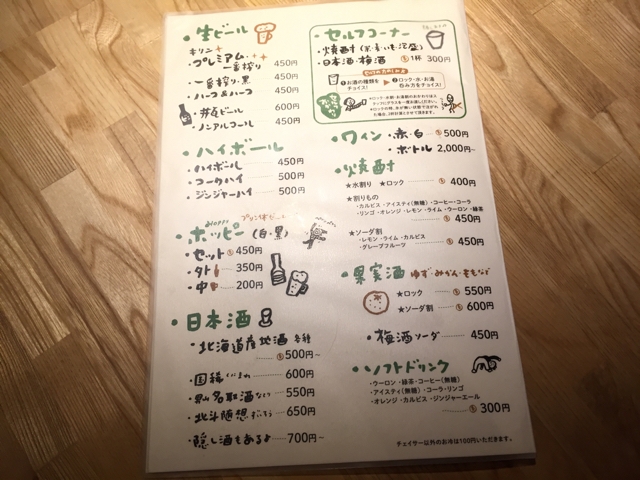 生ビール
キリン
・プレミアム
一番搾り 450円
・一番搾り・黒 450円
・ハーフ&ハーフ 450円
・ビール 600円
・ノンアルコール 450円
・ハイボール
・ハイボール 450円
・コークハイ 500円
・ジンジャーハイ 500円
Hoppy プリン体ゼロ
・ホッピー (白・黒)
・セット 450円
・外 350円
・中 200円
・日本酒
・北海道産地酒 各種
500円~
・国稀 600円
名取酒 550円
・北斗随想 650円
・隠し酒もあるよ 700円~
・セルフコーナー
・焼酎
・日本酒・梅酒 1杯 300円
1 お酒の種類をチョイス!
2 ロック・水・お湯 呑み方をチョイス!
・ワイン・赤・白 500円
・ボトル 2,000円~
・焼酎
★水割り ★ロック 400円
★割りもの
・カルピス・アイスティ(無糖)・コーヒー・コーラ
・リンゴ・オレンジ・レモン・ライム・ウーロン・緑茶
450円
★ソーダ割
・レモン・ライム・カルピス
・グレープフルーツ 450円
・果実酒 ゆず・みかん・ももなど
★ロック 550円
★ソーダ割 600円
・梅酒ソーダ 450円
・ソフトドリンク
・ウーロン・緑茶・コーヒー(無糖)
・アイスティ(無糖)・コーラ・リンゴ
・オレンジ・カルピス・ジンジャーエール
300円
チェイサー以外のお冷は100円いただきます。